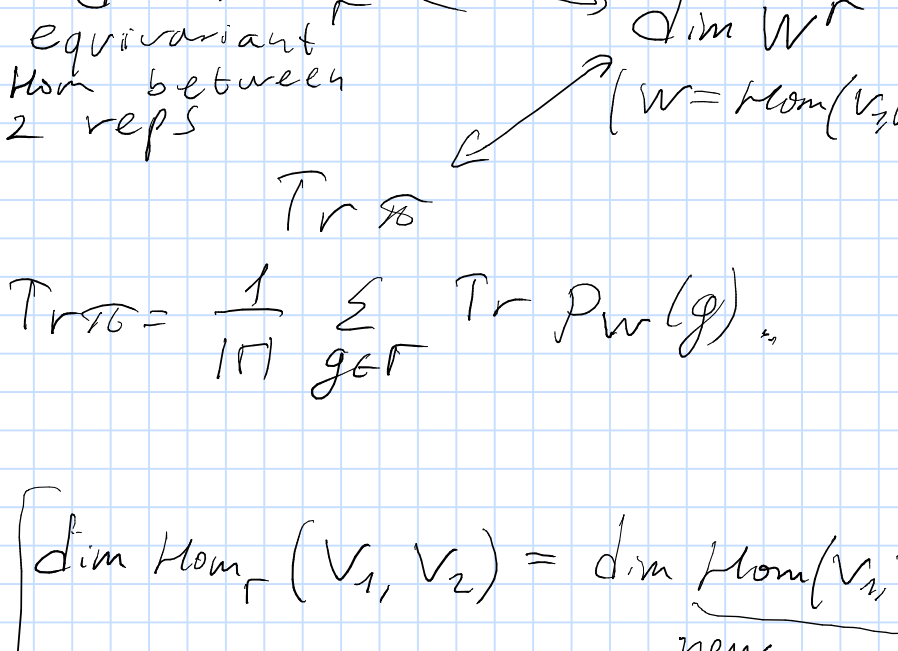 equivariant Γ
Hom between
2 reps
dim W^Γ
(W = Hom(V₁,
Tr π
Tr π = 1/|Γ| Σ_{g∈Γ} Tr ρ_W(g).
dim Hom_Γ (V₁, V₂) = dim Hom(V₁,